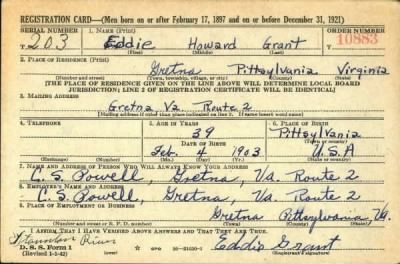 REGISTRATION CARD—(Men born on or after February 17, 1897 and on or before December 31, 1921)
SERIAL NUMBER 1. NAME (Print) ORDER NUMBER
T 203 Eddie Howard Grant 10883
(First) (Middle) (Last)
2. PLACE OF RESIDENCE (Print)
Gretna Pittsylvania Virginia
(Number and street) (Town, township, village, or city) (County) (State)
[THE PLACE OF RESIDENCE GIVEN ON THE LINE ABOVE WILL DETERMINE LOCAL BOARD
JURISDICTION; LINE 2 OF REGISTRATION CERTIFICATE WILL BE IDENTICAL]
3. MAILING ADDRESS
Gretna Va. Route 2
[Mailing address if other than place indicated on line 2. If same insert word same]
4. TELEPHONE 5. AGE IN YEARS 6. PLACE OF BIRTH
39 Pittsylvania
DATE OF BIRTH (Town or county)
Feb. 4 1903 U.S.A
(Exchange) (Number) (Mo.) (Day) (Yr.) (State or country)
7. NAME AND ADDRESS OF PERSON WHO WILL ALWAYS KNOW YOUR ADDRESS
C. S. Powell, Gretna, Va. Route 2
8. EMPLOYER'S NAME AND ADDRESS
C. S. Powell, Gretna, Va. Route 2
9. PLACE OF EMPLOYMENT OR BUSINESS
Gretna Pittsylvania Va.
(Number and street or R. F. D. number) (Town) (County) (State)
I AFFIRM THAT I HAVE VERIFIED ABOVE ANSWERS AND THAT THEY ARE TRUE.
Staunton River
D. S. S. Form 1 GPO Eddie Grant
(Revised 1-1-42)